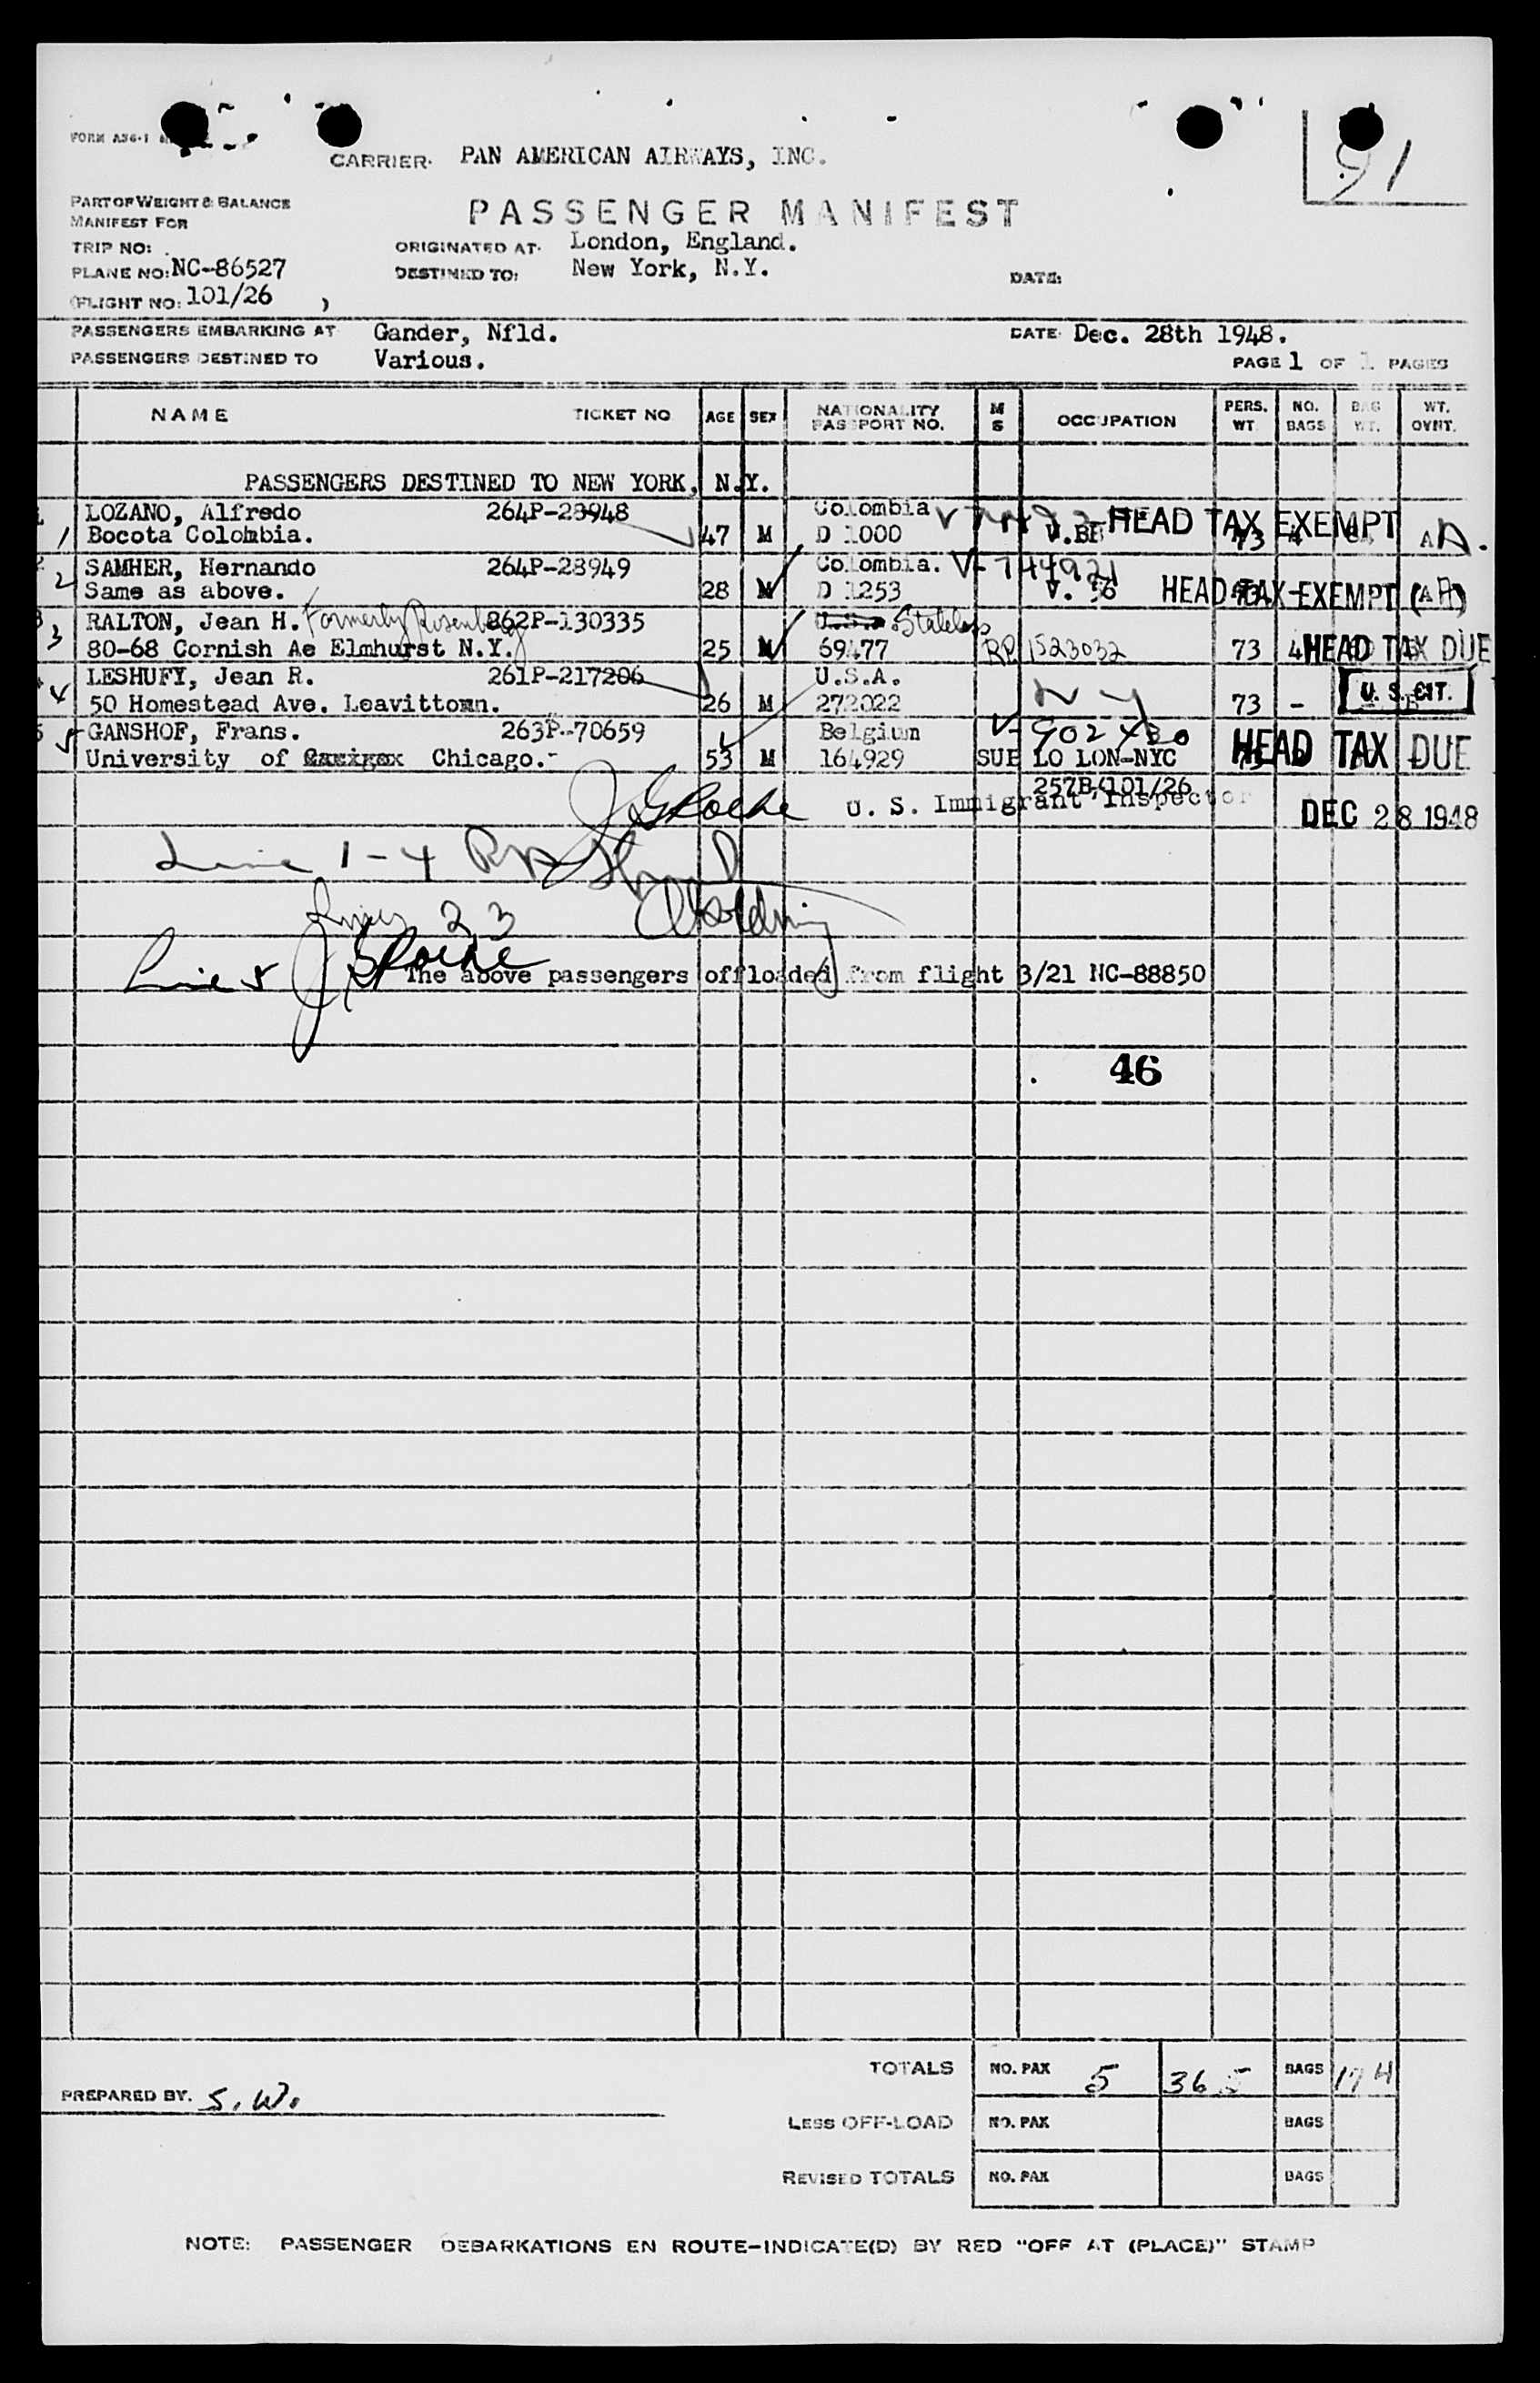 FORM
91
CARRIER. PAN AMERICAN AIRWAYS, INC.
PART OF WEIGHT & BALANCE
MANIFEST FOR
PASSENGER MANIFEST
TRIP NO:
ORIGINATED AT. London, England.
PLANE NO: NC-86527
DESTINED TO: New York, N.Y.
DATE:
(FLIGHT NO: 101/26 )
PASSENGERS EMBARKING AT Gander, Nfld.
DATE. Dec. 28th 1948.
PASSENGERS DESTINED TO Various.
PAGE 1 OF 1 PAGES
NAME TICKET NO AGE SEX NATIONALITY PASSPORT NO. M S OCCUPATION PERS. WT. NO. BAGS BAG WT. WT. OVNT.
PASSENGERS DESTINED TO NEW YORK, N.Y.
LOZANO, Alfredo 264P-28948 Colombia HEAD TAX EXEMPT
1 Bocota Colombia. 47 M D 1000 73 A.
SAMHER, Hernando 264P-28949 Colombia. V-744921
2 Same as above. 28 M D 1253 HEAD TAX EXEMPT
RALTON, Jean H. Formerly Rosenberg 862P-130335 Stateless
3 80-68 Cornish Ae Elmhurst N.Y. 25 M 69477 RP 1523032 73 4 HEAD TAX DUE
LESHUFY, Jean R. 261P-217206 U.S.A.
4 50 Homestead Ave. Leavittown. 26 M 272022 N Y 73 - U. S. CIT.
GANSHOF, Frans. 263P-70659 Belgium V-902430
5 University of Chicago. 53 M 164929 SUB LO LON-NYC HEAD TAX DUE
257B/101/26
U. S. Immigrant Inspector
DEC 28 1948
Line 1-4
Lines 2 3
Line 5
The above passengers offloaded from flight 3/21 NC-88850
46
TOTALS NO. PAX 5 365 BAGS 17
PREPARED BY. S.W.
LESS OFF-LOAD NO. PAX BAGS
REVISED TOTALS NO. PAX BAGS
NOTE: PASSENGER DEBARKATIONS EN ROUTE-INDICATE(D) BY RED "OFF AT (PLACE)" STAMP